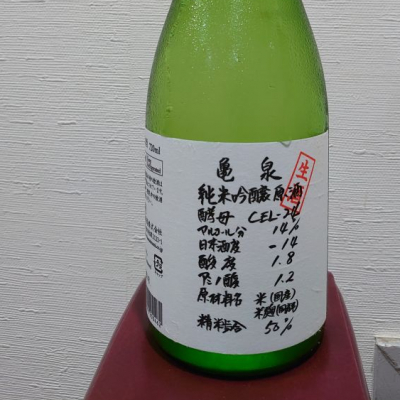 亀泉
生酒
純米吟醸原酒
酵母 CEL-24
アルコール分 14%
日本酒度 -14
酸度 1.8
アミノ酸 1.2
原材料名 米(国産)
米麹(国産米)
精米歩合 50%
720ml